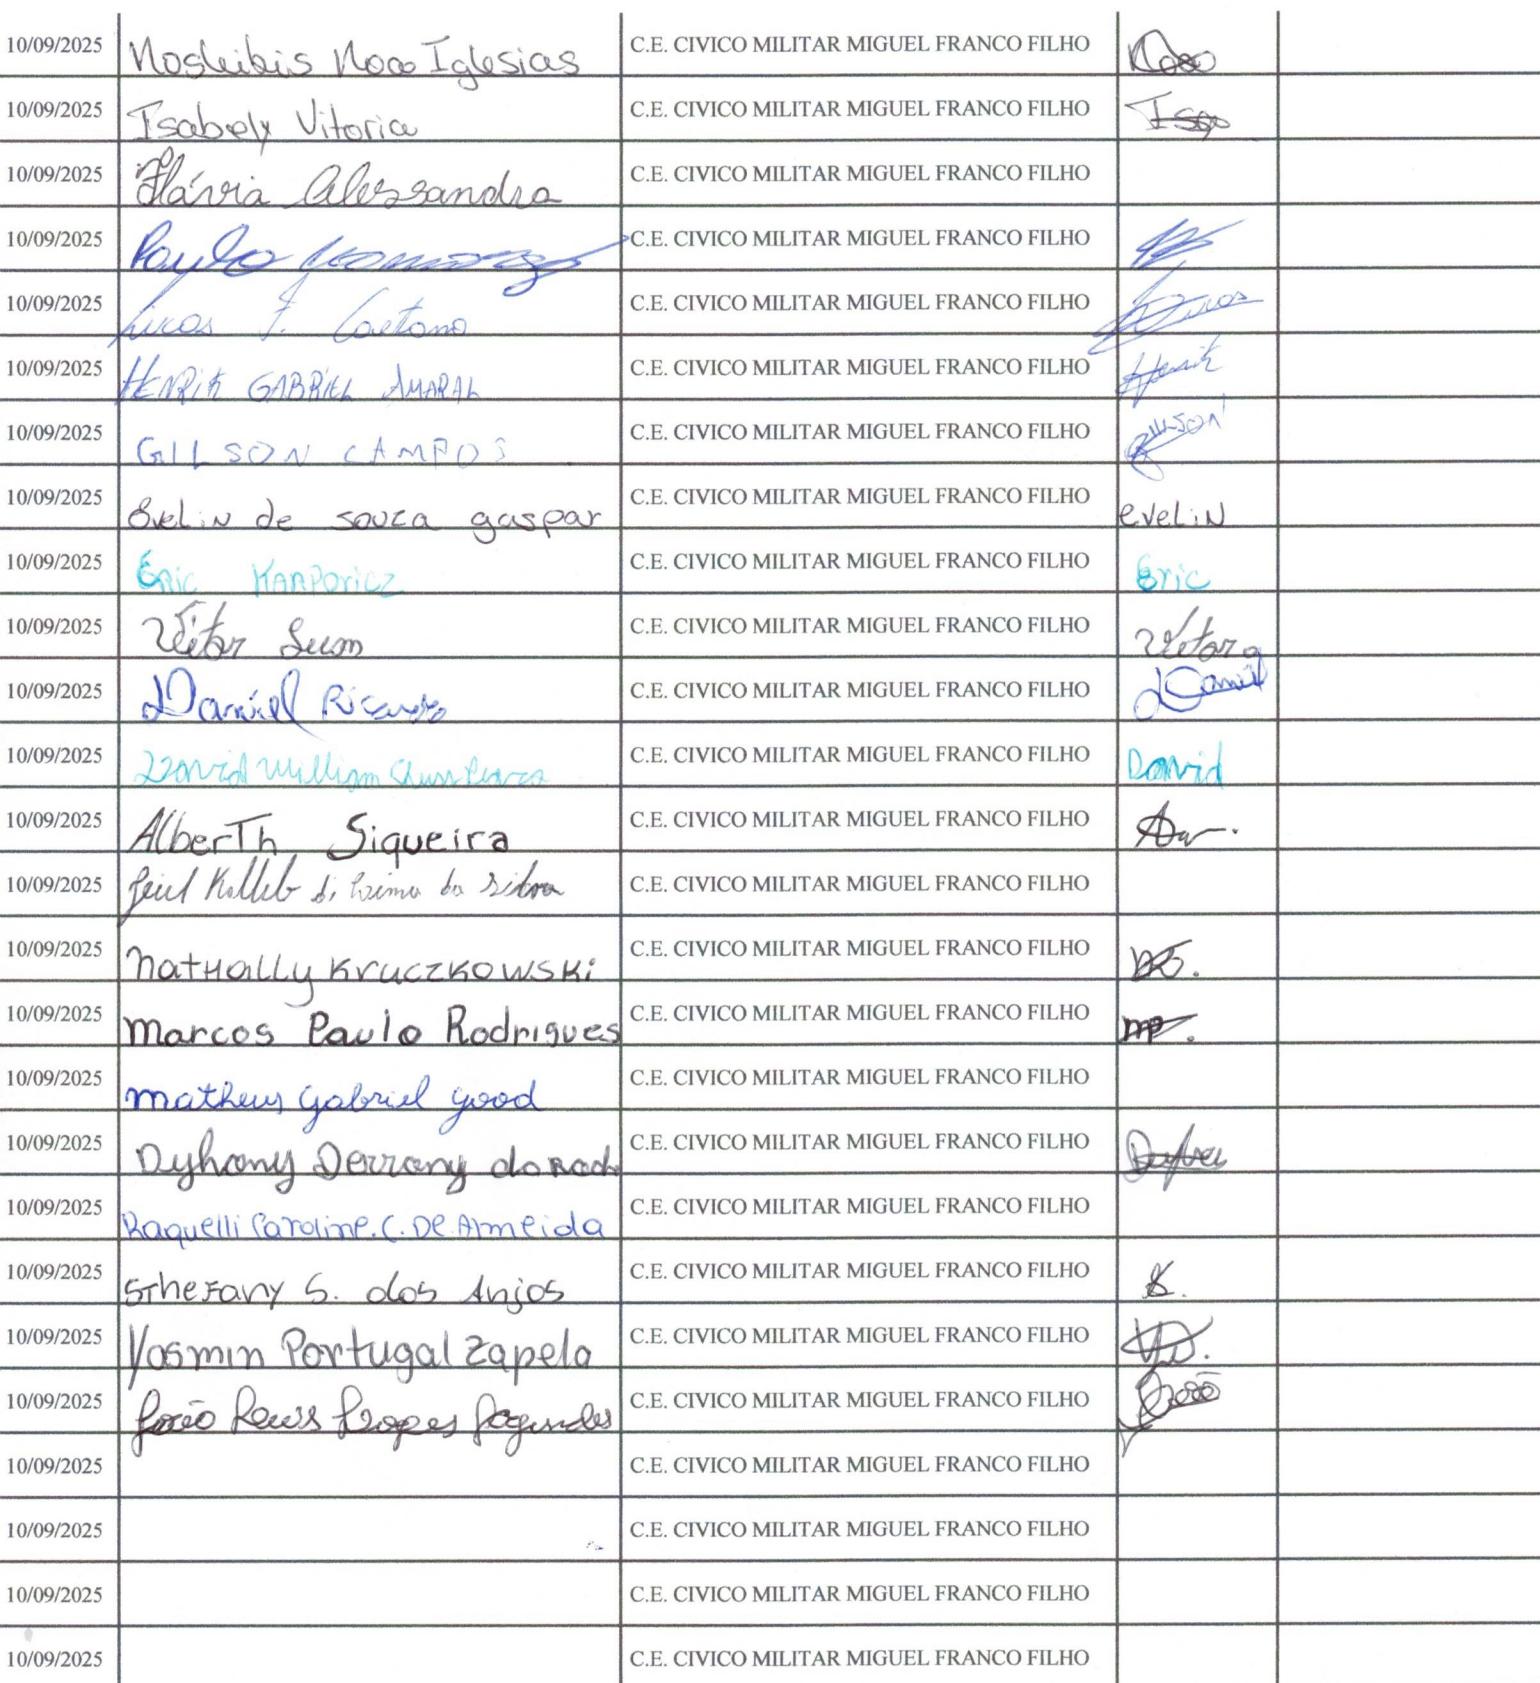 10/09/2025 Nosleibis Noa Iglesias C.E. CIVICO MILITAR MIGUEL FRANCO FILHO
10/09/2025 Isabely Vitoria C.E. CIVICO MILITAR MIGUEL FRANCO FILHO Isa
10/09/2025 Flávia Alessandra C.E. CIVICO MILITAR MIGUEL FRANCO FILHO
10/09/2025 Paulo C.E. CIVICO MILITAR MIGUEL FRANCO FILHO
10/09/2025 Lucas F. Caetano C.E. CIVICO MILITAR MIGUEL FRANCO FILHO Lucas
10/09/2025 HENRIK GABRIEL AMARAL C.E. CIVICO MILITAR MIGUEL FRANCO FILHO Henrik
10/09/2025 GILSON CAMPOS C.E. CIVICO MILITAR MIGUEL FRANCO FILHO GILSON
10/09/2025 Evelin de souza gaspar C.E. CIVICO MILITAR MIGUEL FRANCO FILHO evelin
10/09/2025 Eric Karpovicz C.E. CIVICO MILITAR MIGUEL FRANCO FILHO Eric
10/09/2025 Vitor C.E. CIVICO MILITAR MIGUEL FRANCO FILHO Vitor
10/09/2025 Daniel Ricardo C.E. CIVICO MILITAR MIGUEL FRANCO FILHO Daniel
10/09/2025 David William C.E. CIVICO MILITAR MIGUEL FRANCO FILHO David
10/09/2025 Alberth Siqueira C.E. CIVICO MILITAR MIGUEL FRANCO FILHO
10/09/2025 Kalleb di Lima da Silva C.E. CIVICO MILITAR MIGUEL FRANCO FILHO
10/09/2025 Nathally Kruczkowski C.E. CIVICO MILITAR MIGUEL FRANCO FILHO
10/09/2025 Marcos Paulo Rodrigues C.E. CIVICO MILITAR MIGUEL FRANCO FILHO MP.
10/09/2025 Matheus Gabriel good C.E. CIVICO MILITAR MIGUEL FRANCO FILHO
10/09/2025 Dyhony Derrany da Roch C.E. CIVICO MILITAR MIGUEL FRANCO FILHO
10/09/2025 Raquelli Caroline. C. De Almeida C.E. CIVICO MILITAR MIGUEL FRANCO FILHO
10/09/2025 Sthefany S. dos Anjos C.E. CIVICO MILITAR MIGUEL FRANCO FILHO S.
10/09/2025 Yasmin Portugal Zapela C.E. CIVICO MILITAR MIGUEL FRANCO FILHO
10/09/2025 João Lewis Lopes Fagundes C.E. CIVICO MILITAR MIGUEL FRANCO FILHO João
10/09/2025 C.E. CIVICO MILITAR MIGUEL FRANCO FILHO
10/09/2025 C.E. CIVICO MILITAR MIGUEL FRANCO FILHO
10/09/2025 C.E. CIVICO MILITAR MIGUEL FRANCO FILHO
10/09/2025 C.E. CIVICO MILITAR MIGUEL FRANCO FILHO